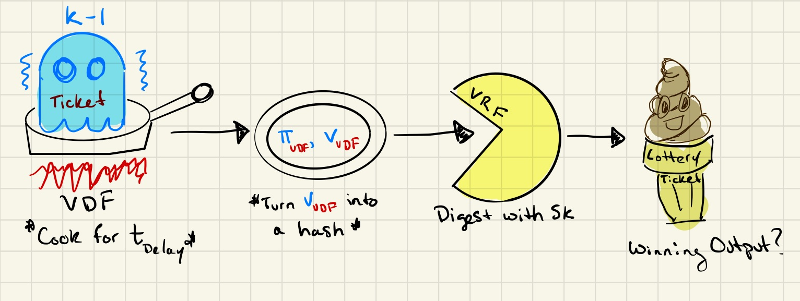 k-1
Ticket
VDF
*Cook for t_Delay*
π_VDF, V_VDF
*Turn V_VDF into
a hash*
VRF
Digest with Sk
Lottery
Ticket
Winning Output?